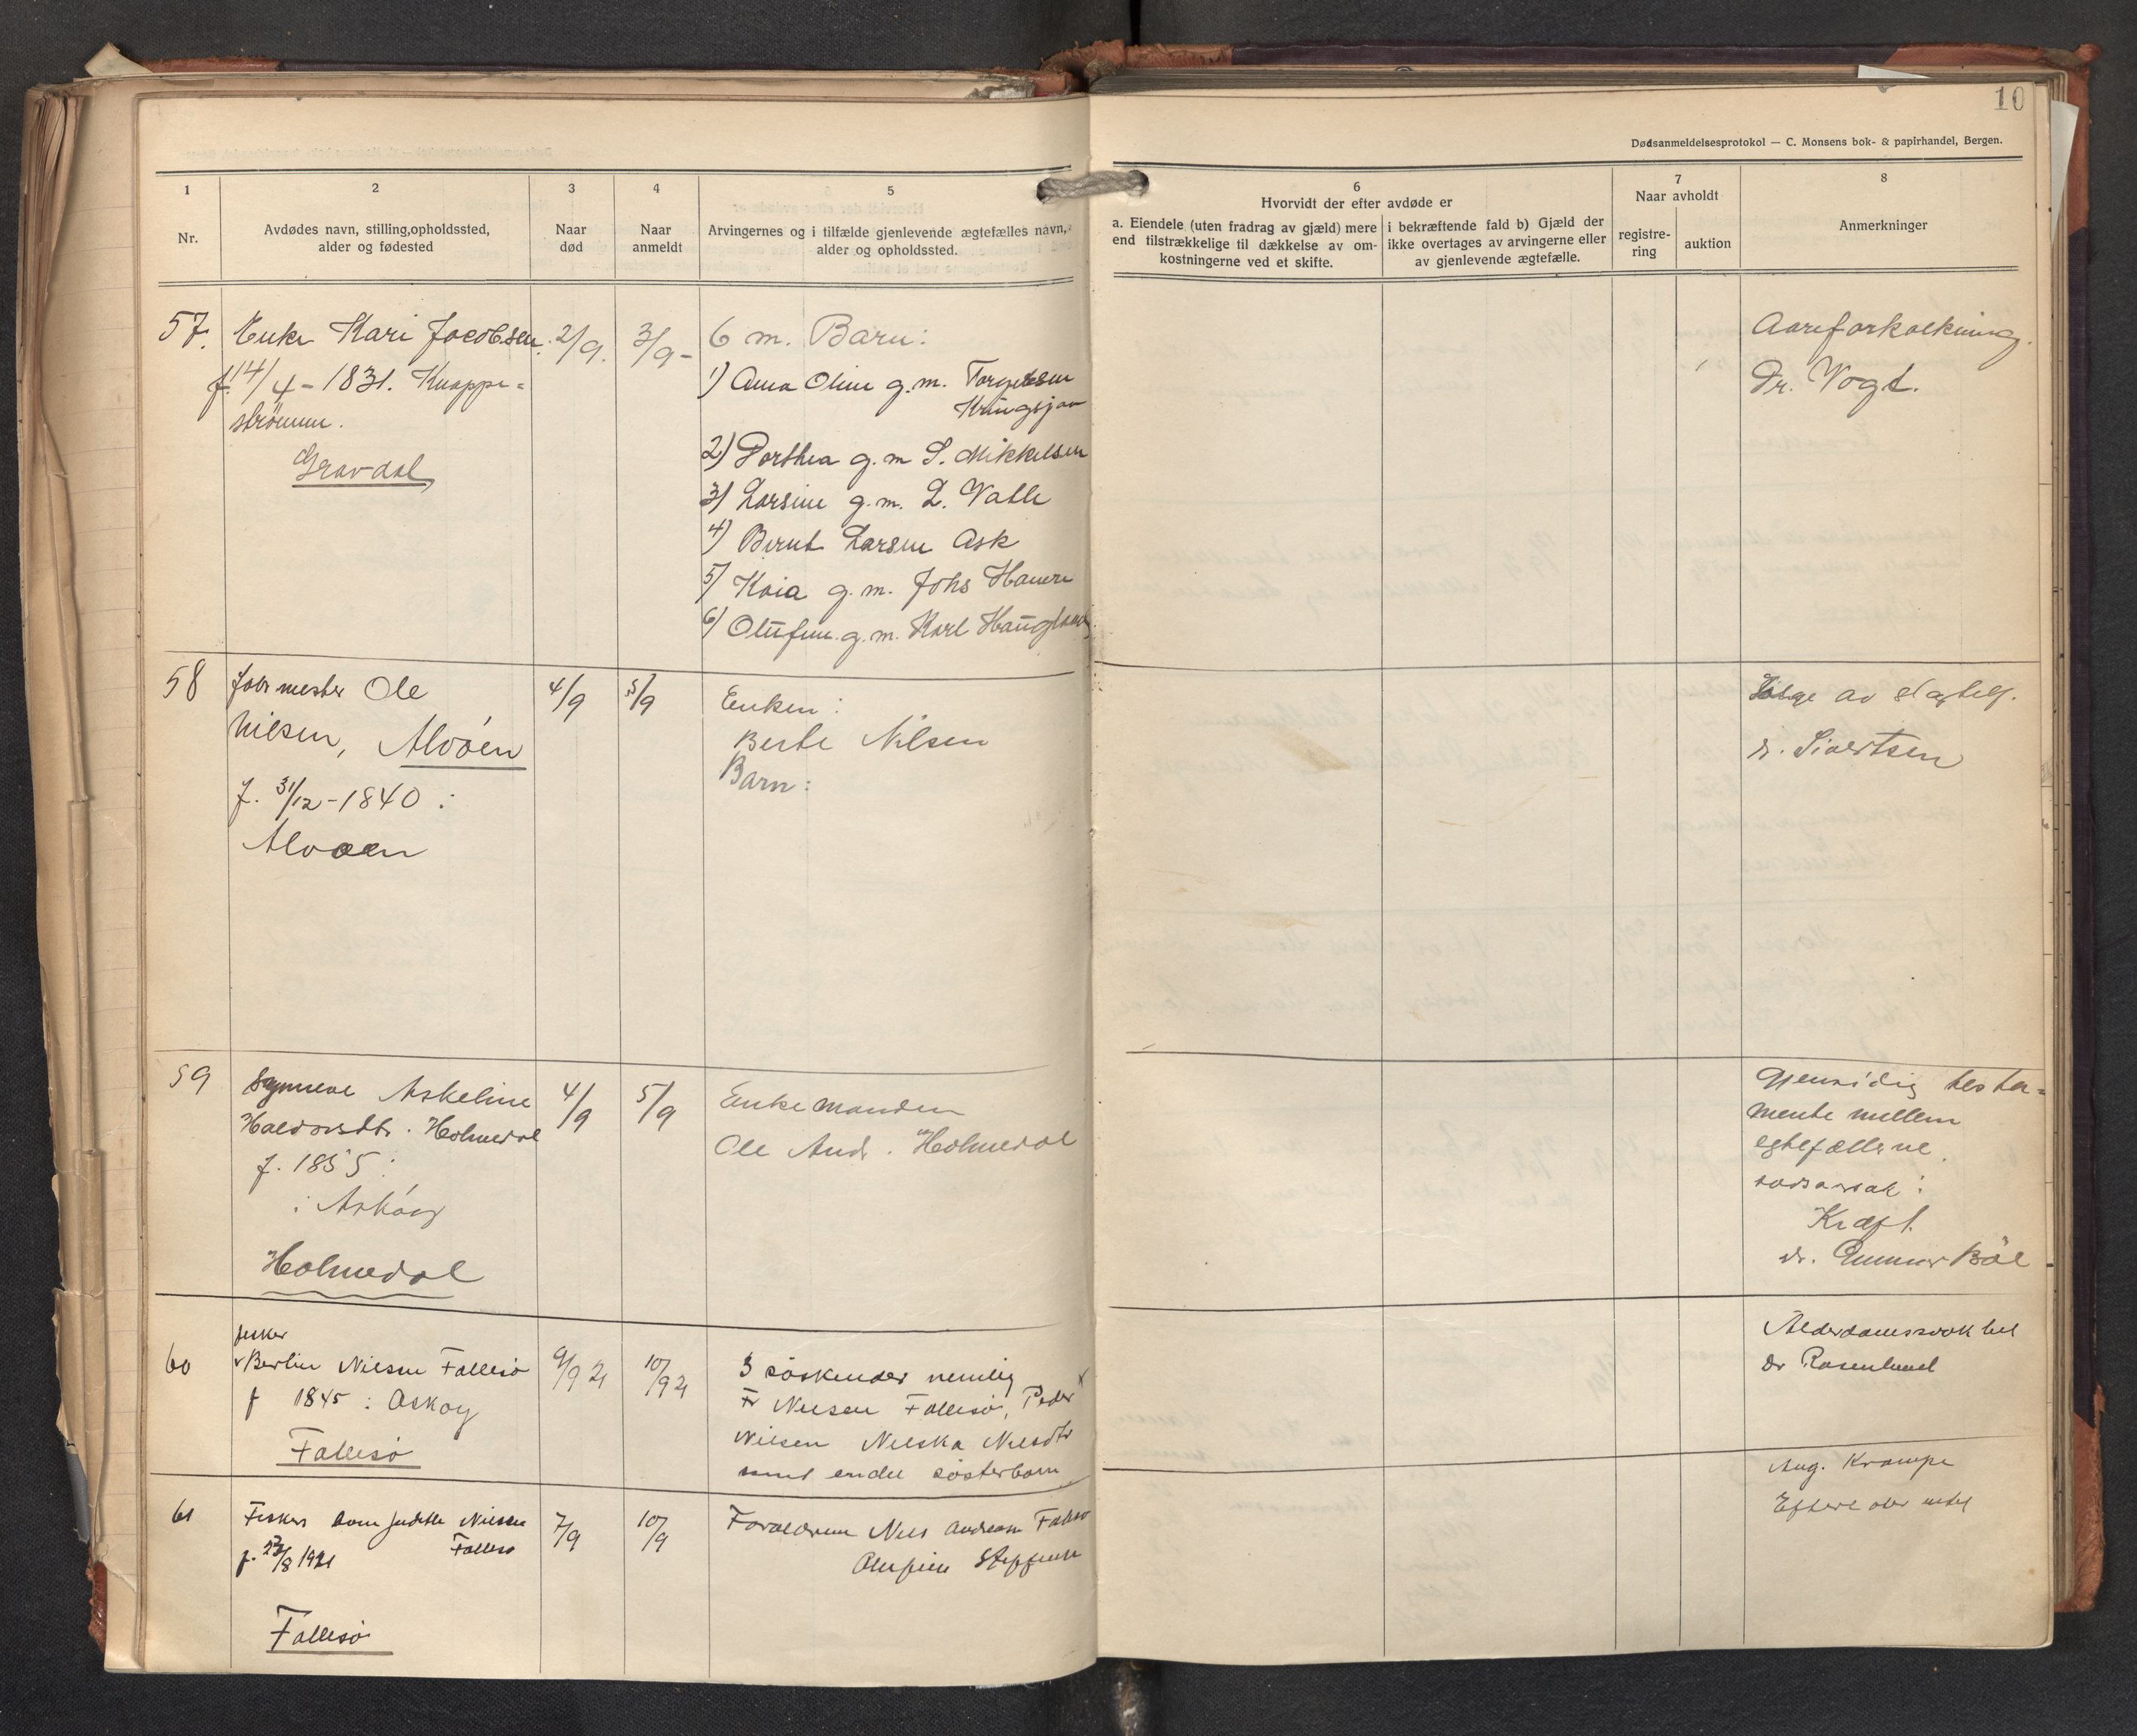 10
Dødsanmeldelsesprotokol — C. Monsens bok- & papirhandel, Bergen.
1
2
3
4
5
6
7
8
Nr.
Avdødes navn, stilling, opholdssted,
alder og fødested
Naar
død
Naar
anmeldt
Arvingernes og i tilfælde gjenlevende ægtefælles navn,
alder og opholdssted.
Hvorvidt der efter avdøde er
a. Eiendele (uten fradrag av gjæld) mere
end tilstrækkelige til dækkelse av om-
kostningerne ved et skifte.
i bekræftende fald b) Gjæld der
ikke overtages av arvingerne eller
av gjenlevende ægtefælle.
Naar avholdt
registre-
ring
auktion
Anmerkninger
57.
Enke Kari Jacobsen.
f. 14/4 - 1831. Knappe-
strömmen.
Gravdal
2/9.
3/9 -
6 m. Barn:
1) Anna Oline g.m. Torgersen
2) Dorthea g.m S. Mikkelsen
3) Larsine g.m. L. Vatle
4) Bernt Larsen Ask
5) Kaia g.m. Johs Hansen
6) Olufine g.m. Karl Haugland
Aareforkalkning.
Dr. Vogt.
58
Formester Ole
Nilsen, Alvöen
f. 31/12 - 1840 :
Alvöen
4/9
5/9
Enken:
Berte Nilsen
Barn:
Følge av slagtilf.
dr. Sivertsen
59
Synneve Askeline
Haldorsdtr. Holmedal
f. 1855 :
: Asköy
Holmedal
4/9
5/9
Enkemanden
Ole And. Holmedal
Gjensidig testa-
mente mellem
egtefællerne.
dödsarsak :
Kræft.
dr. Gunnar Böe
60
fisker
Bertin Nilsen Fallesö
f 1845 : Askøy
Fallesö
9/9 21
10/9 21
3 söskender nemlig
Fr Nilsen Fallesö, Peder
Nilsen Nilska Nilsdtr
samt endel sösterbarn
Alderdomssvakhet
Dr Rosenlund
61
Fiskers barn Judithe Nilsen
f. 23/8 1921 Fallesö
Fallesö
7/9
10/9
Foreldrene Nils Andreas Fallesö
Olufine Steffensen
Ang. Krampe